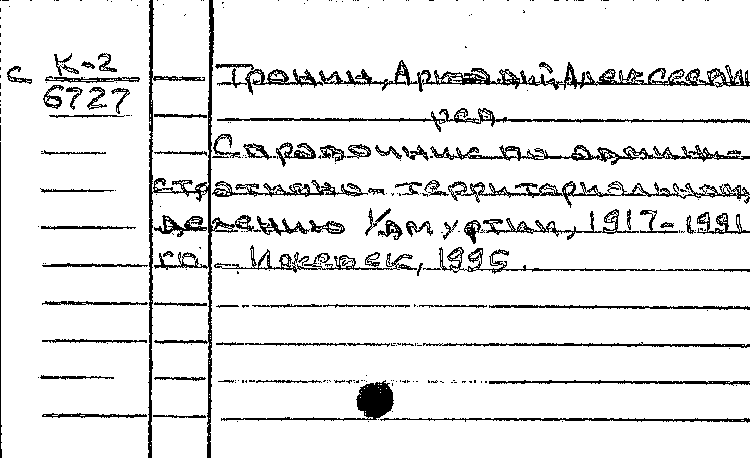 С К-2 Тронин, Аркадий Алексеевич
6727
ред.
Справочник по админи-
стративно-территориальному
делению Удмуртии, 1917-1991
гг. - Ижевск, 1995.